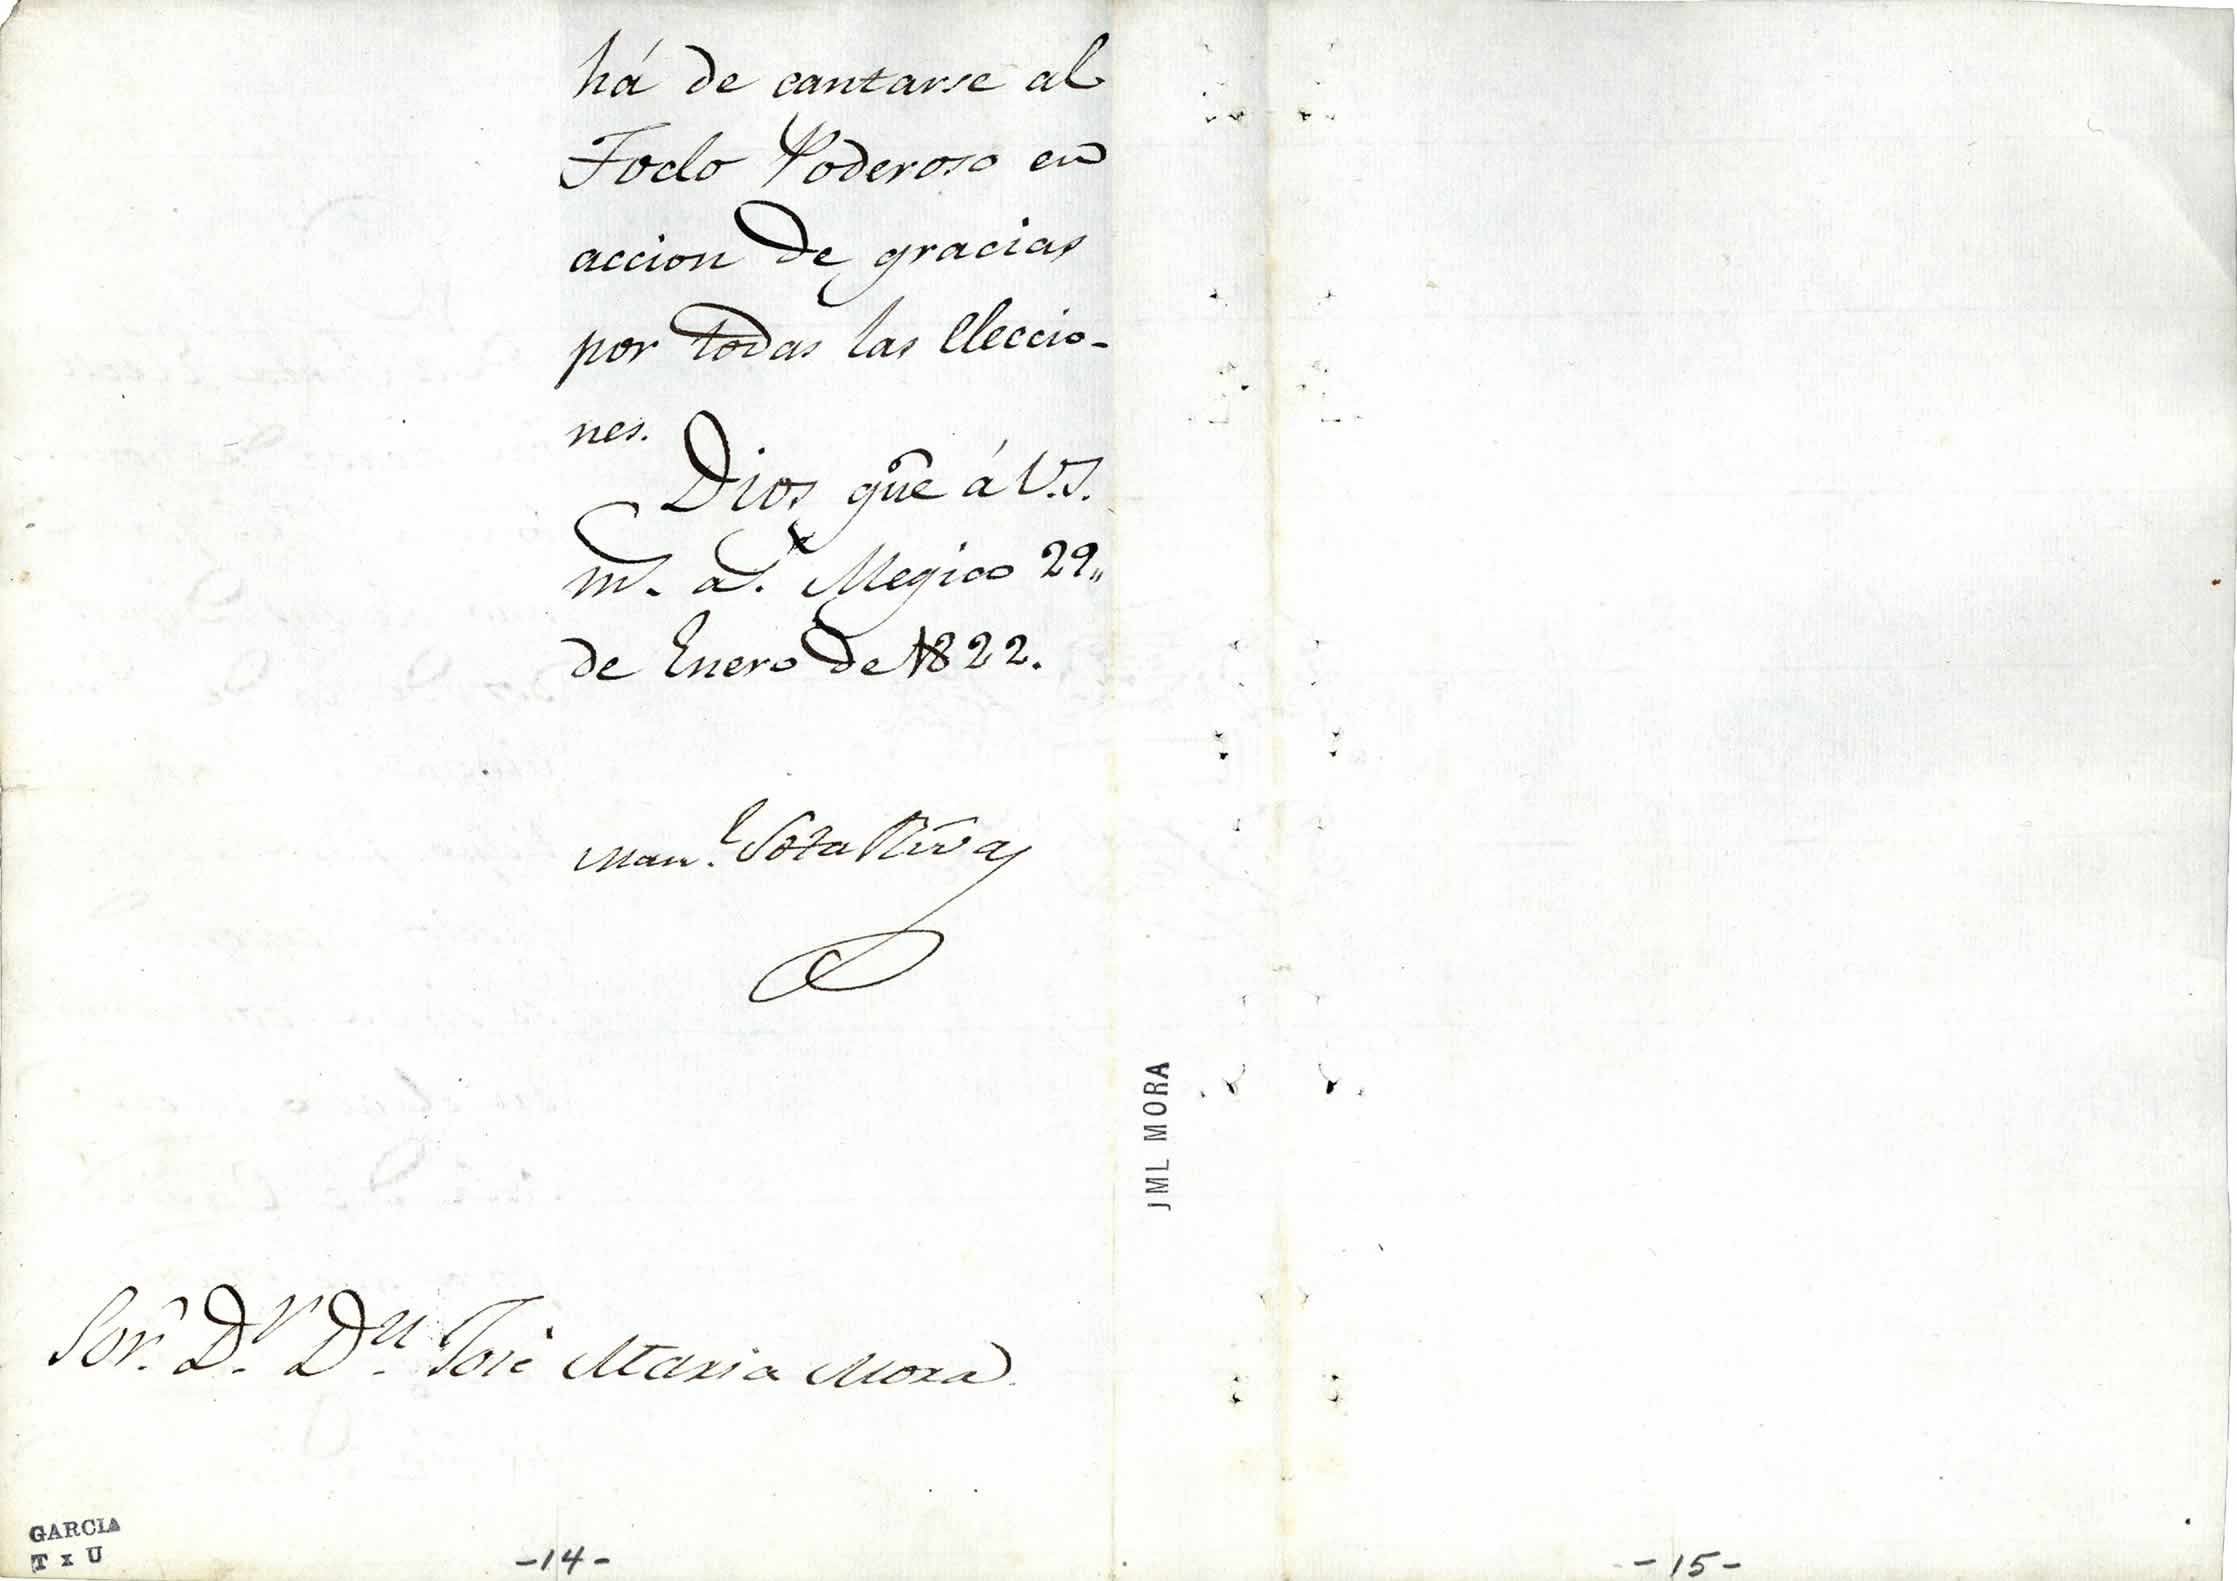 há de cantarse al
Todo Poderoso en
accion de gracias
por todas las Eleccio-
nes.
Dios gũe á V.S.
ms. as. Megico 29,,
de Enero de 1822.
Man.l Sota Riva
JML MORA
Sor. D.r D.n José Maria Mora
GARCIA
T x U
-14-
-15-